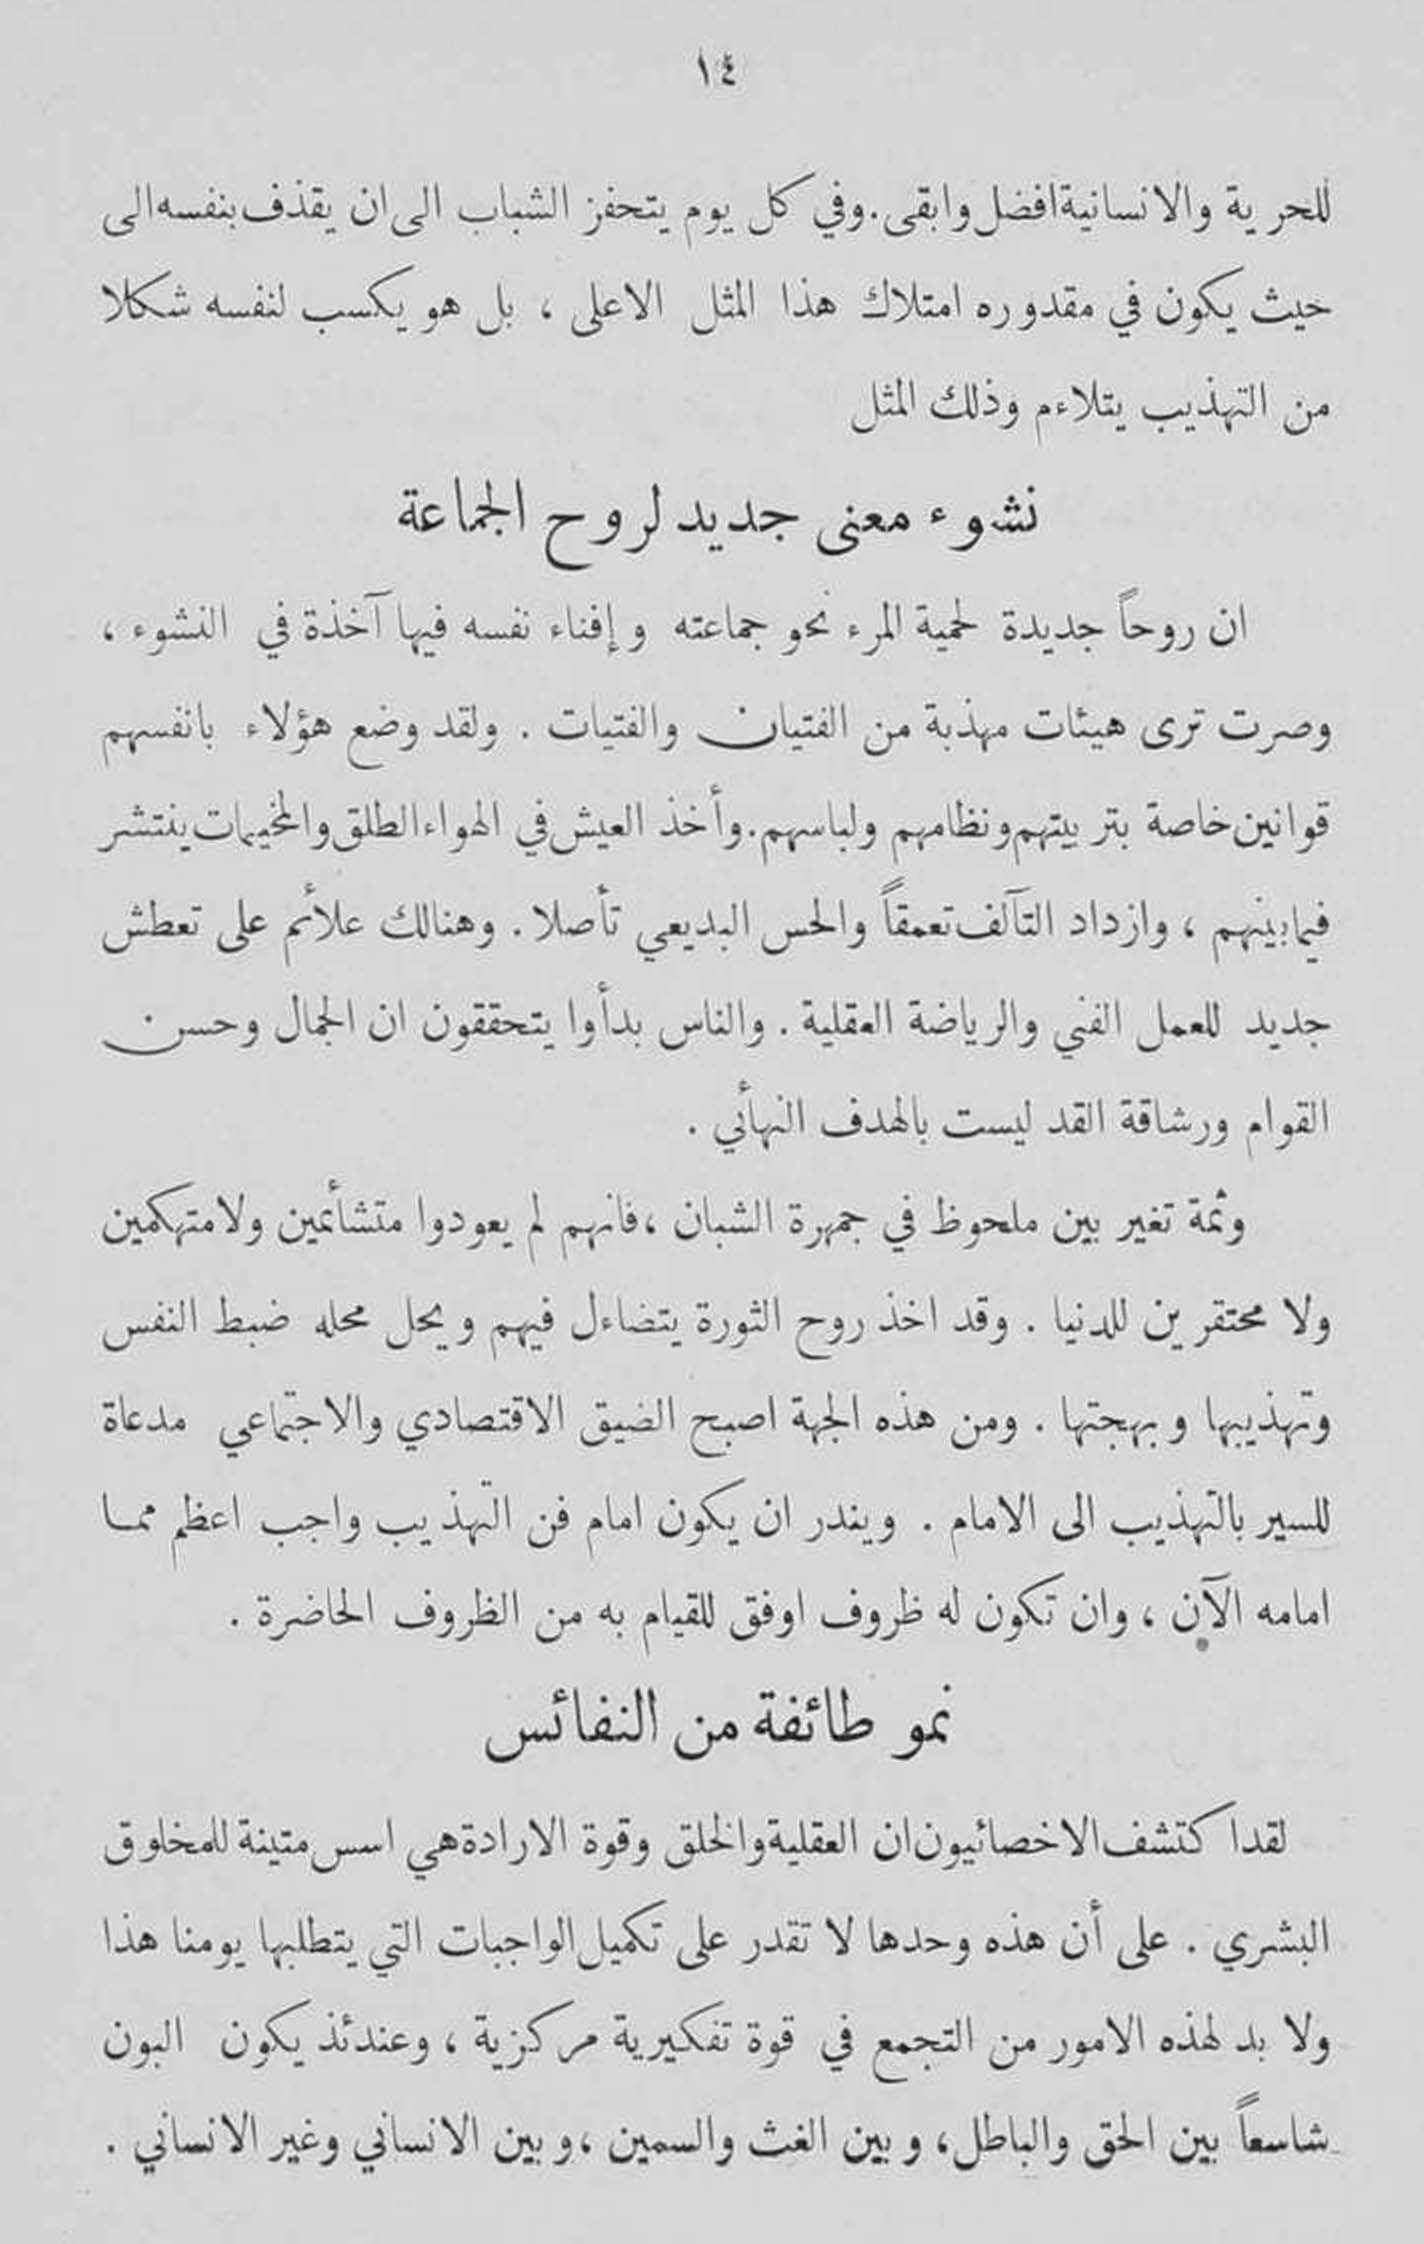 ١٤
للحرية والانسانية افضل وابقى. وفي كل يوم يتحفز الشباب الى ان يقذف بنفسه الى
حيث يكون في مقدوره امتلاك هذا المثل الاعلى ، بل هو يكسب لنفسه شكلا
من التهذيب يتلاءم وذلك المثل
نشوء معنى جديد لروح الجماعة
ان روحاً جديدة لحمية المرء نحو جماعته وإفناء نفسه فيها آخذة في النشوء ،
وصرت ترى هيئات مهذبة من الفتيان والفتيات . ولقد وضع هؤلاء بانفسهم
قوانين خاصة بتربيتهم ونظامهم ولباسهم. وأخذ العيش في الهواء الطلق والمخيمات ينتشر
فيما بينهم ، وازداد التآلف تعمقاً والحس البديعي تأصلا . وهنالك علائم على تعطش
جديد للعمل الفني والرياضة العقلية . والناس بدأوا يتحققون ان الجمال وحسن
القوام ورشاقة القد ليست بالهدف النهائي .
وثمة تغير بين ملحوظ في جمهرة الشبان ، فانهم لم يعودوا متشائمين ولا متهكمين
ولا محتقرين للدنيا . وقد اخذ روح الثورة يتضاءل فيهم ويحل محله ضبط النفس
وتهذيبها وبهجتها . ومن هذه الجهة اصبح الضيق الاقتصادي والاجتماعي مدعاة
للسير بالتهذيب الى الامام . ويندر ان يكون امام فن التهذيب واجب اعظم مما
امامه الآن ، وان تكون له ظروف اوفق للقيام به من الظروف الحاضرة .
نمو طائفة من النفائس
لقد اكتشف الاخصائيون ان العقلية والخلق وقوة الارادة هي اسس متينة للمخلوق
البشري . على أن هذه وحدها لا تقدر على تكميل الواجبات التي يتطلبها يومنا هذا
ولا بد لهذه الامور من التجمع في قوة تفكيرية مركزية ، وعندئذ يكون البون
شاسعاً بين الحق والباطل ، وبين الغث والسمين ، وبين الانساني وغير الانساني .